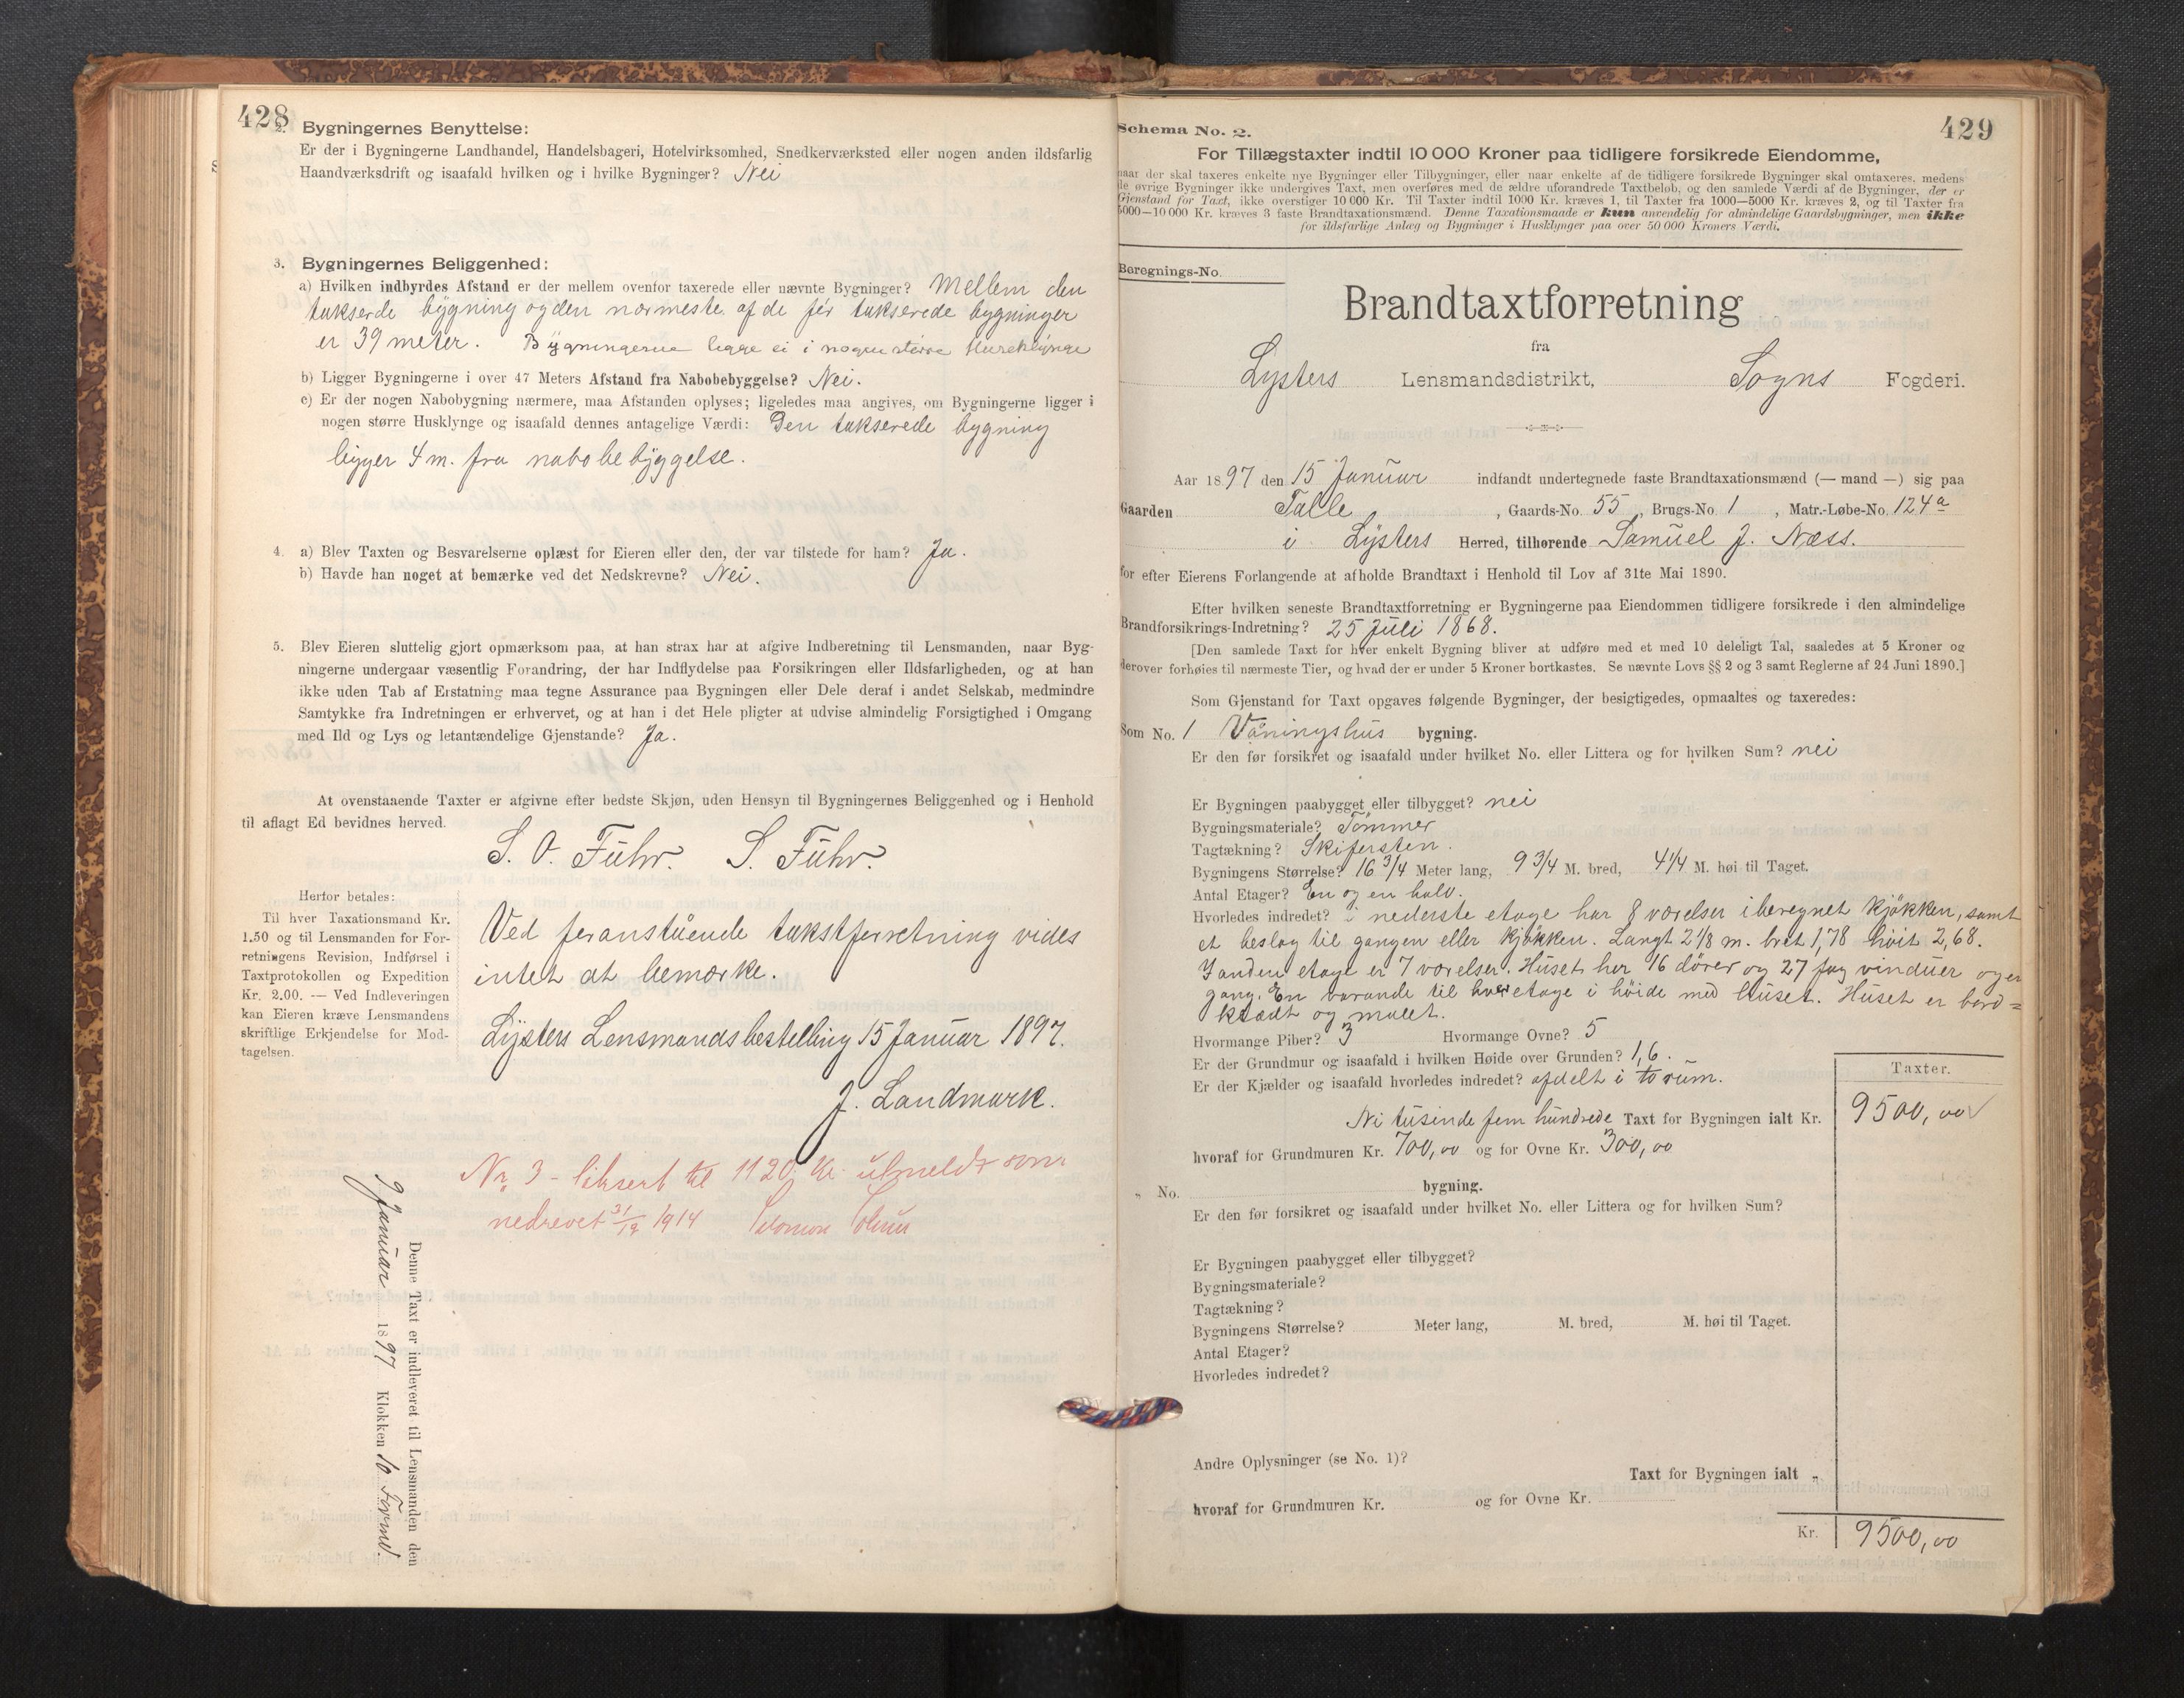 428
2. Bygningernes Benyttelse:
Er der i Bygningerne Landhandel, Handelsbageri, Hotelvirksomhed, Snedkerværksted eller nogen anden ildsfarlig
Haandværksdrift og isaafald hvilken og i hvilke Bygninger? Nei
3. Bygningernes Beliggenhed:
a) Hvilken indbyrdes Afstand er der mellem ovenfor taxerede eller nævnte Bygninger? Mellem den
takserde bygning og den nærmeste af de før takserede bygninger
er 39 meter. Bygningerne ligge ei i nogen større Huseklynge
b) Ligger Bygningerne i over 47 Meters Afstand fra Nabobebyggelse? Nei.
c) Er der nogen Nabobygning nærmere, maa Afstanden oplyses; ligeledes maa angives, om Bygningerne ligger i
nogen større Husklynge og isaafald dennes antagelige Værdi: Den takserede bygning
ligger 4 m. fra nabobebyggelse.
4. a) Blev Taxten og Besvarelserne oplæst for Eieren eller den, der var tilstede for ham? Ja.
b) Havde han noget at bemærke ved det Nedskrevne? Nei.
5. Blev Eieren sluttelig gjort opmærksom paa, at han strax har at afgive Indberetning til Lensmanden, naar Byg-
ningerne undergaar væsentlig Forandring, der har Indflydelse paa Forsikringen eller Ildsfarligheden, og at han
ikke uden Tab af Erstatning maa tegne Assurance paa Bygningen eller Dele deraf i andet Selskab, medmindre
Samtykke fra Indretningen er erhvervet, og at han i det Hele pligter at udvise almindelig Forsigtighed i Omgang
med Ild og Lys og letantændelige Gjenstande? Ja.
At ovenstaaende Taxter er afgivne efter bedste Skjøn, uden Hensyn til Bygningernes Beliggenhed og i Henhold
til aflagt Ed bevidnes herved.
S. O. Fuhr. S. Fuhr.
Herfor betales:
Til hver Taxationsmand Kr.
1.50 og til Lensmanden for For-
retningens Revision, Indførsel i
Taxtprotokollen og Expedition
Kr. 2.00. — Ved Indleveringen
kan Eieren kræve Lensmandens
skriftlige Erkjendelse for Mod-
tagelsen.
Ved foranstående takstforretning vides
intet at bemærke.
Lysters Lensmandsbestelling 15 Januar 1897.
J. Landmark.
Nr. 3 - taksert til 1120 kr. utmeldt som
nedrevet 31/12 1914
Denne Taxt er indleveret til Lensmanden den
9 Januar 1897 Klokken 10 Formd
429
Schema No. 2.
For Tillægstaxter indtil 10 000 Kroner paa tidligere forsikrede Eiendomme,
naar der skal taxeres enkelte nye Bygninger eller Tilbygninger, eller naar enkelte af de tidligere forsikrede Bygninger skal omtaxeres, medens
de øvrige Bygninger ikke undergives Taxt, men overføres med de ældre uforandrede Taxtbeløb, og den samlede Værdi af de Bygninger, der er
Gjenstand for Taxt, ikke overstiger 10 000 Kr. Til Taxter indtil 1000 Kr. kræves 1, til Taxter fra 1000—5000 Kr. kræves 2, og til Taxter fra
5000—10 000 Kr. kræves 3 faste Brandtaxationsmænd. Denne Taxationsmaade er kun anvendelig for almindelige Gaardsbygninger, men ikke
for ildsfarlige Anlæg og Bygninger i Husklynger paa over 50 000 Kroners Værdi.
Beregnings-No.
Brandtaxtforretning
fra
Lysters Lensmandsdistrikt, Sogns Fogderi.
Aar 1897 den 15 Januar indfandt undertegnede faste Brandtaxationsmænd (— mand —) sig paa
Gaarden Talle, Gaards-No. 55, Brugs-No. 1, Matr.-Løbe-No. 124a
i Lysters Herred, tilhørende Samuel J. Næss.
for efter Eierens Forlangende at afholde Brandtaxt i Henhold til Lov af 31te Mai 1890.
Efter hvilken seneste Brandtaxtforretning er Bygningerne paa Eiendommen tidligere forsikrede i den almindelige
Brandforsikrings-Indretning? 25 Juli 1868.
[Den samlede Taxt for hver enkelt Bygning bliver at udføre med et med 10 deleligt Tal, saaledes at 5 Kroner og
derover forhøies til nærmeste Tier, og hvad der er under 5 Kroner bortkastes. Se nævnte Lovs §§ 2 og 3 samt Reglerne af 24 Juni 1890.]
Som Gjenstand for Taxt opgaves følgende Bygninger, der besigtigedes, opmaaltes og taxeredes:
Som No. 1 Våningshus bygning.
Er den før forsikret og isaafald under hvilket No. eller Littera og for hvilken Sum? nei
Er Bygningen paabygget eller tilbygget? nei
Bygningsmateriale? Tømmer
Tagtækning? Skifersten.
Bygningens Størrelse? 16 3/4 Meter lang, 9 3/4 M. bred, 4 1/4 M. høi til Taget.
Antal Etager? En og en halv.
Hvorledes indredet? I nederste etage har 8 værelser iberegnet kjøkken, samt
et beslag til gangen eller kjøkken. Langt 2 1/8 m. bret 1,78 høit 2,68.
I anden etage er 7 værelser. Huset har 16 dører og 27 fag vinduer og en
gang. En varande til hver etage i høide med huset. Huset er bord=
klædt og malet.
Hvormange Piber? 3 Hvormange Ovne? 5
Er der Grundmur og isaafald i hvilken Høide over Grunden? 1,6.
Er der Kjælder og isaafald hvorledes indredet? afdelt i to rum.
Taxter.
Ni tusinde fem hundrede Taxt for Bygningen ialt Kr. 9500,00
hvoraf for Grundmuren Kr. 700,00 og for Ovne Kr. 300,00
„ No. bygning.
Er den før forsikret og isaafald under hvilket No. eller Littera og for hvilken Sum?
Er Bygningen paabygget eller tilbygget?
Bygningsmateriale?
Tagtækning?
Bygningens Størrelse? Meter lang, M. bred, M. høi til Taget.
Antal Etager?
Hvorledes indredet?
Andre Oplysninger (se No. 1)?
Taxt for Bygningen ialt „
hvoraf for Grundmuren Kr. og for Ovne Kr.
Kr. 9500,00